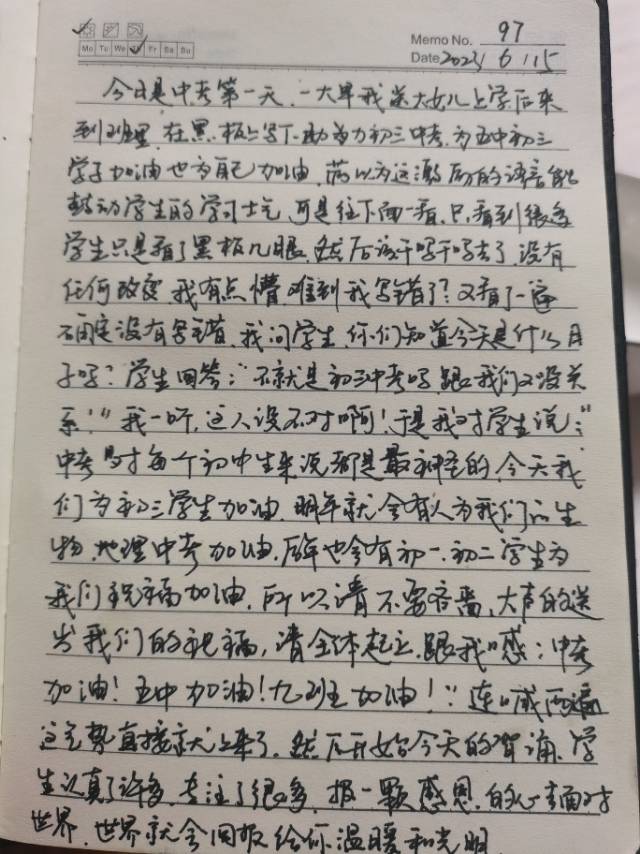 Memo No. 97
Mo Tu We Th Fr Sa Su
Date 2023 / 6 / 15
今日是中考第一天,一大早我送大女儿上学后来
到班里,在黑板上写下助力初三中考,为五中初三
学子加油也为自己加油,满以为这激励的语言能
鼓动学生的学习士气,可是往下面一看,只看到很多
学生只是看了黑板几眼,然后该干吗干吗去了,没有
任何改变,我有点懵,难到我写错了?又看了一遍
确定没有写错,我问学生,你们知道今天是什么日
子吗?学生回答:“不就是初三中考吗,跟我们又没关
系!”我一听,这人设不对啊!于是我对学生说:“
中考对每个初中生来说都是最神圣的,今天我
们为初三学生加油,明年就会有人为我们的生
物,地理中考加油,后年也会有初一、初二学生为
我们祝福加油,所以请不要吝啬,大声的送
出我们的祝福,请全体起立,跟我喊:中考
加油!五中加油!九班加油!”连喊两遍
这气势直接就上来了,然后开始今天的背诵,学
生认真了许多,专注了很多,报一颗感恩的心去面对
世界,世界就会回报给你温暖和光明。